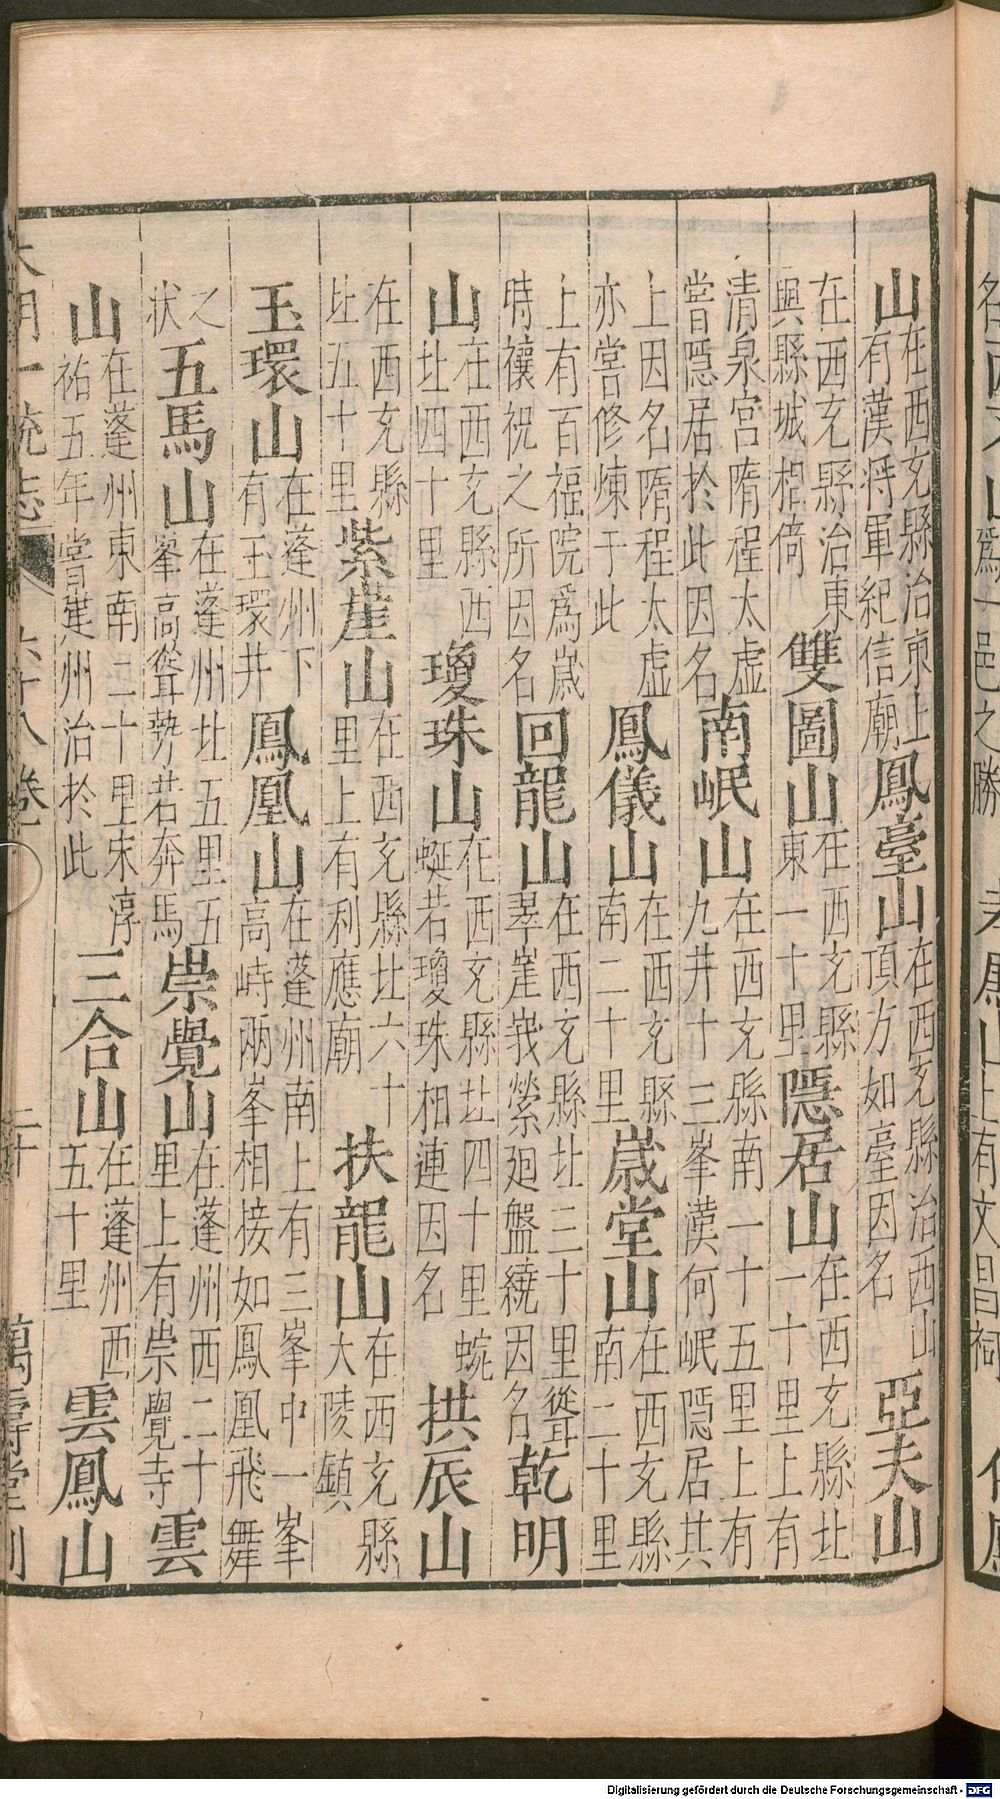 山在西充縣治東上有漢將軍紀信廟鳳臺山在西充縣治西山頂方如臺因名亞夫山
在西充縣治東興縣城相倚雙圖山在西充縣東一十里隱居山在西充縣北一十里上有
清泉宮隋程太虛嘗隱居於此因名南岷山在西充縣南一十五里上有九井十三峯漢何岷隱居其
上因名隋程太虛亦嘗修煉于此鳳儀山在西充縣南二十里歲堂山在西充縣南二十里
上有百福院爲歲時禳祝之所因名回龍山在西充縣北三十里聳翠崖峩縈廻盤繞因名乾明
山在西充縣西北四十里瓊珠山在西充縣北四十里蜿蜒若瓊珠相連因名拱辰山
在西充縣北五十里紫崖山在西充縣北六十里上有利應廟扶龍山在西充縣大陵鎮
玉環山在蓬州下有玉環井鳳凰山在蓬州南上有三峯中一峯高峙兩峯相接如鳳凰飛舞
之狀五馬山在蓬州北五里五峯高聳勢若奔馬崇覺山在蓬州西二十里上有崇覺寺雲
山在蓬州東南二十里宋淳祐五年嘗遷州治於此三合山在蓬州西五十里雲鳳山
大明一統志 六十八卷 二十 萬壽堂刊
Digitalisierung gefördert durch die Deutsche Forschungsgemeinschaft - DFG